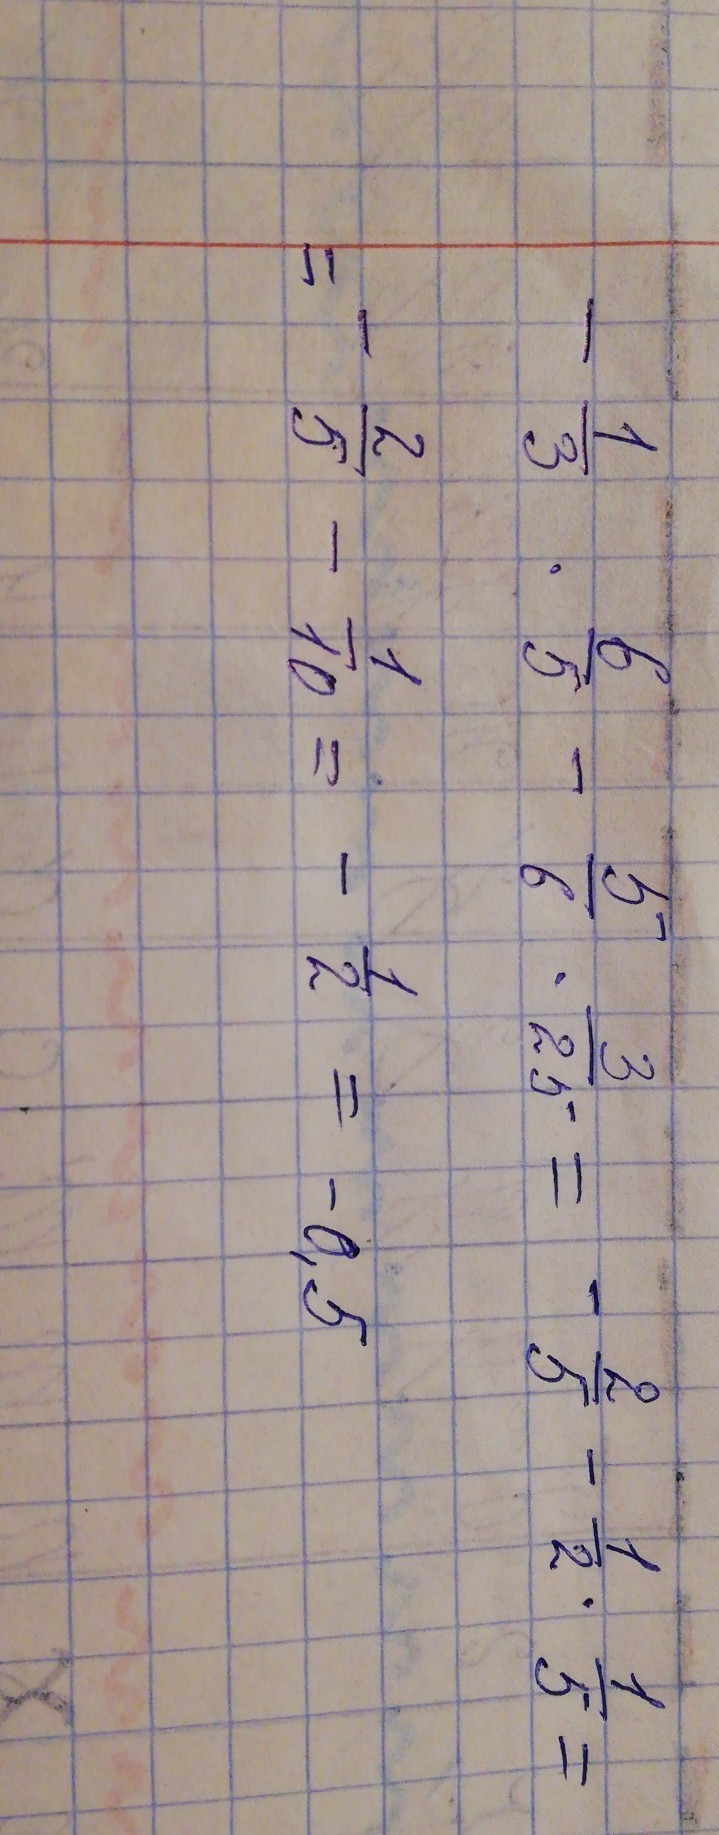 - 1/3 · 6/5 - 5/6 · 3/25 = - 2/5 - 1/2 · 1/5 =
= - 2/5 - 1/10 = - 1/2 = -0,5